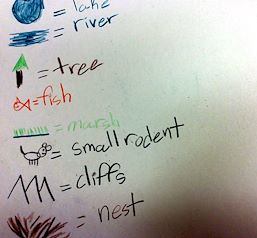 = lake
= river
= tree
= fish
= marsh
= small rodent
= cliffs
= nest